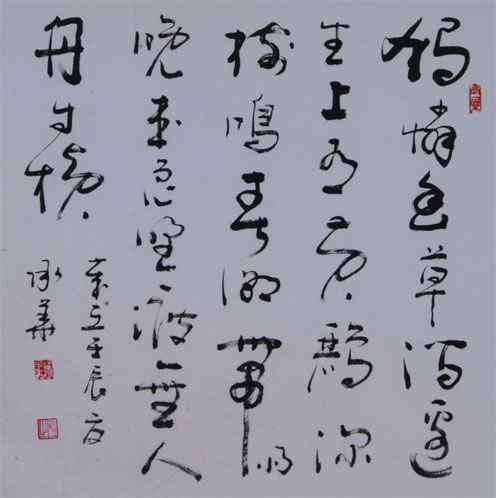 獨憐幽草澗邊
生上有黃鸝深
樹鳴春潮帶雨
晚來急野渡無人
舟自橫
歲在壬辰夏
承華